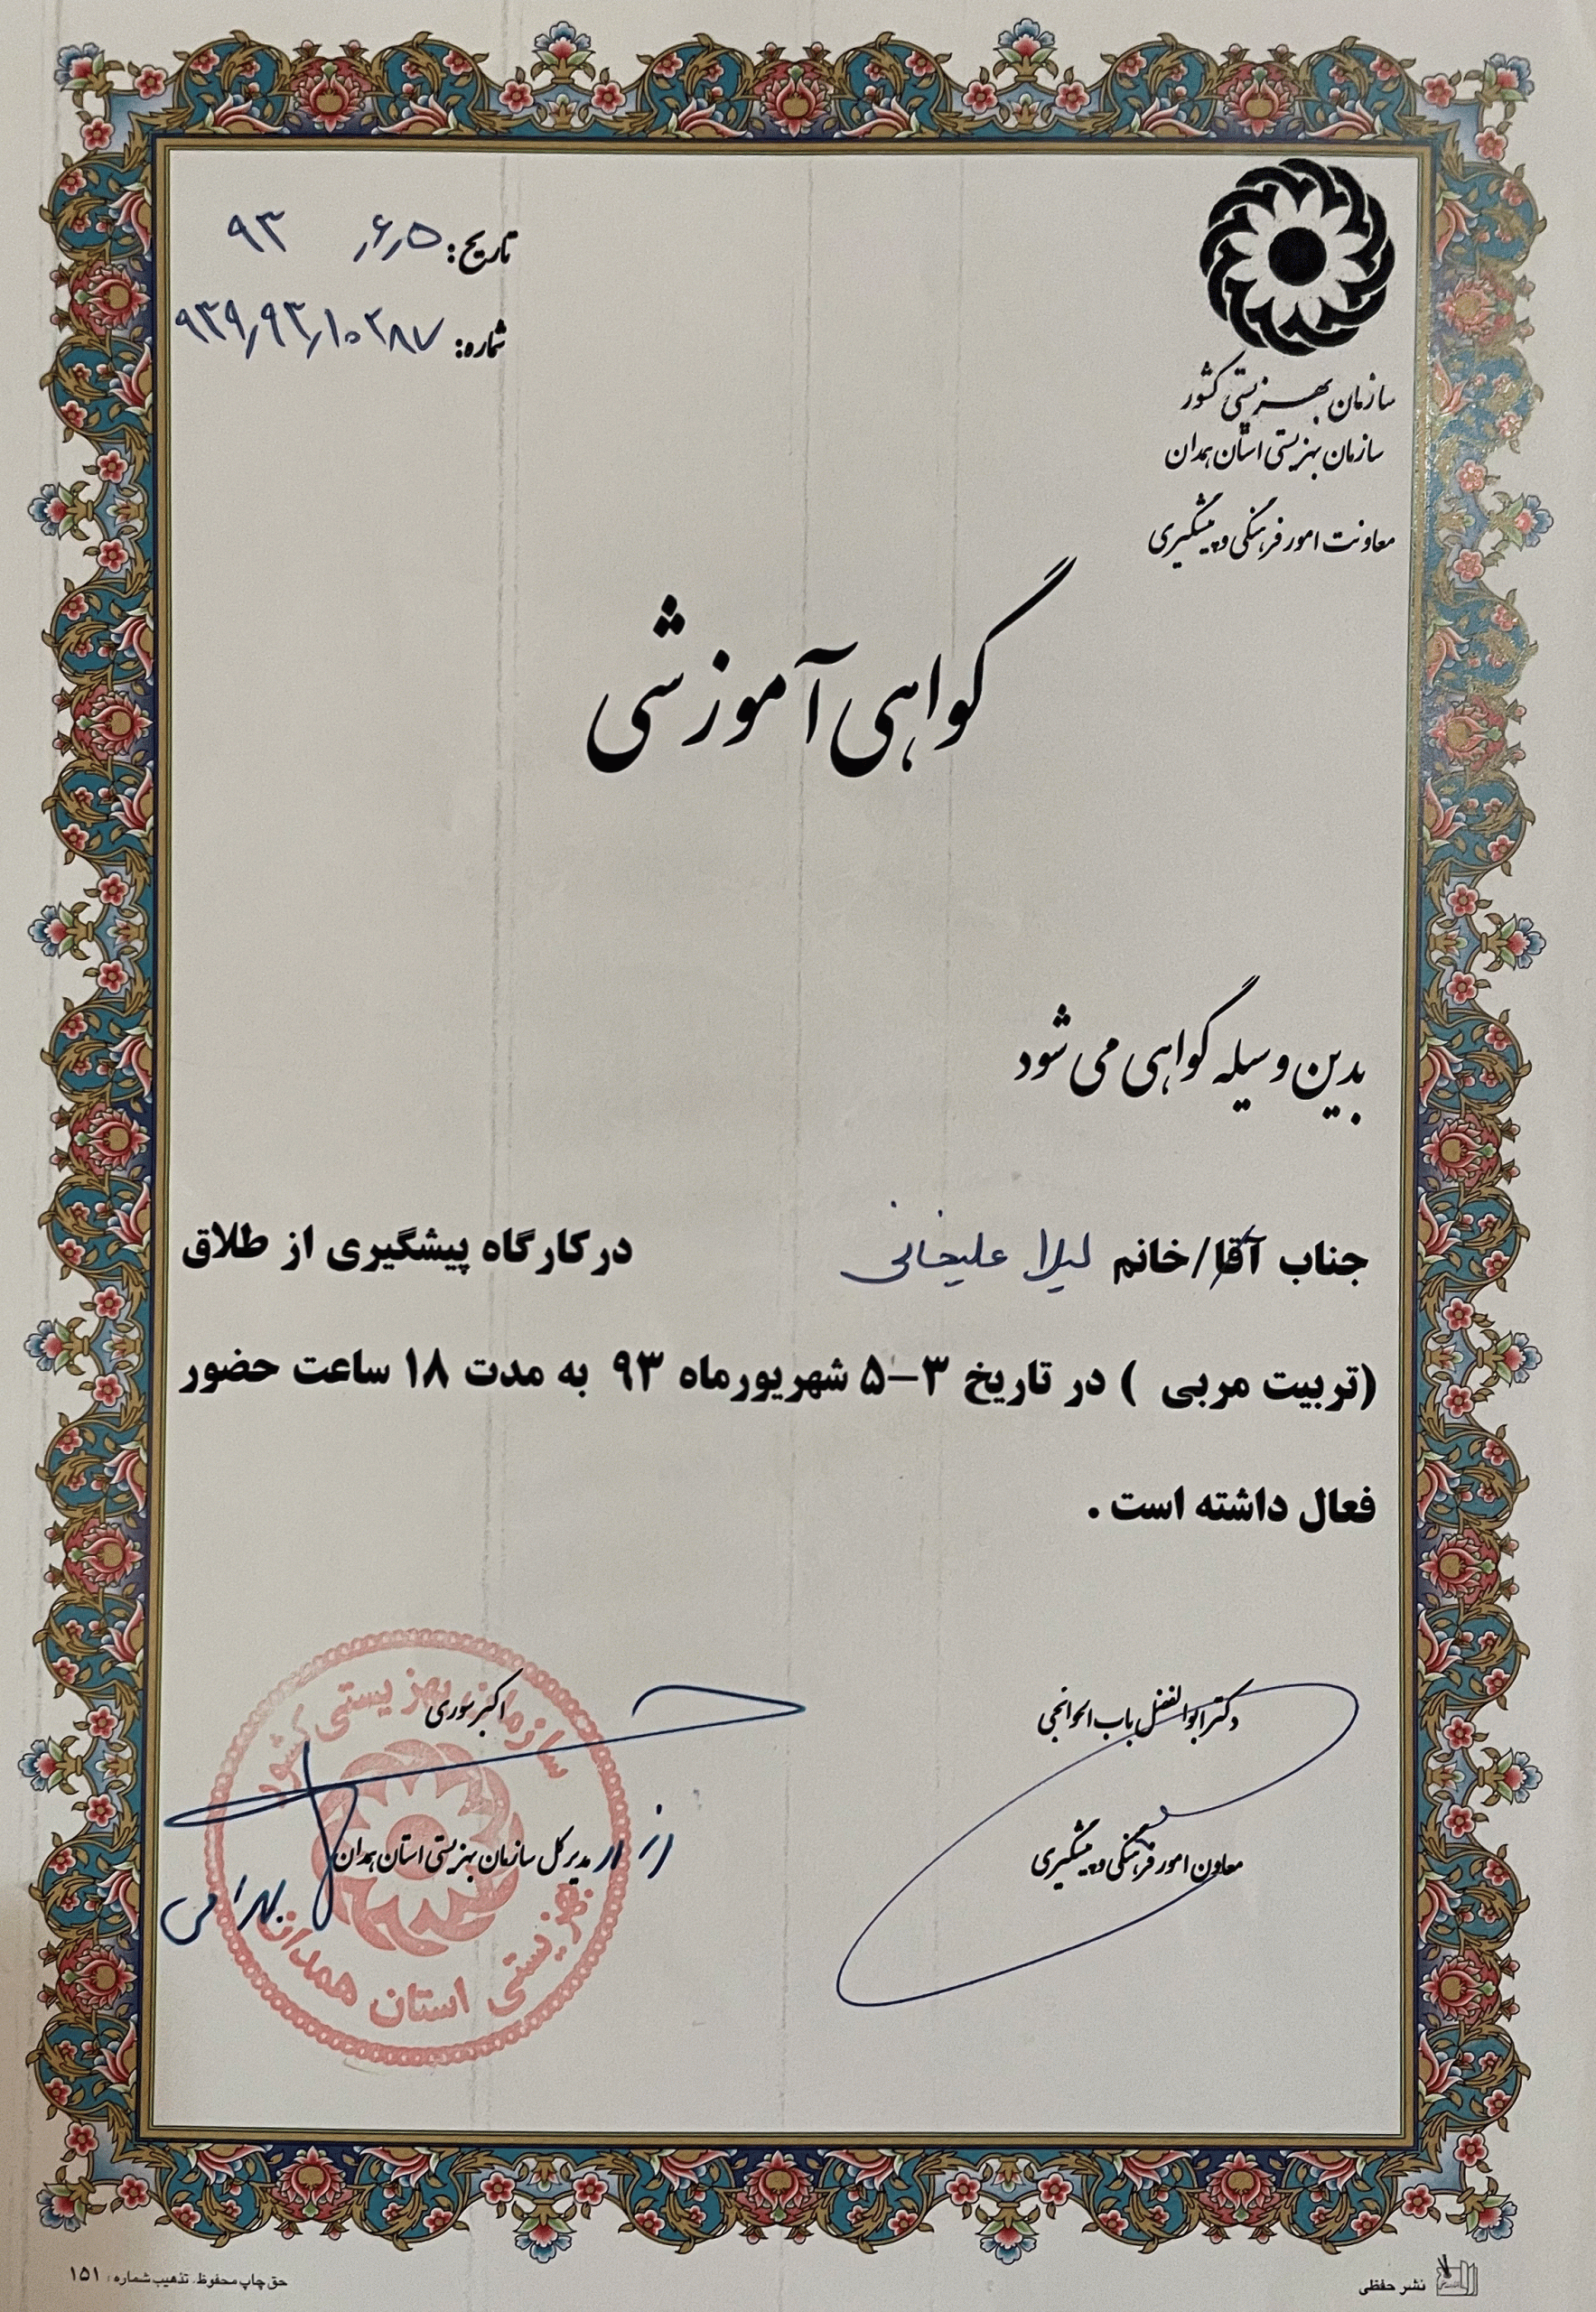 تاریخ: ۹۳ ٫۶٫۵
شماره: ۹۳۹٫۹۳٫۱۰۲۸۷
سازمان بهزیستی کشور
سازمان بهزیستی استان همدان
معاونت امور فرهنگی و پیشگیری
گواهی آموزشی
بدین وسیله گواهی می شود
جناب آقا/خانم لیلا علیخانی در کارگاه پیشگیری از طلاق
(تربیت مربی ) در تاریخ ۳-۵ شهریورماه ۹۳ به مدت ۱۸ ساعت حضور
فعال داشته است .
دکتر ابوالفضل باب الحوائجی
معاون امور فرهنگی و پیشگیری
اکبر سوری
مدیر کل سازمان بهزیستی استان همدان
سازمان بهزیستی کشور
بهزیستی استان همدان
نشر حفظی
حق چاپ محفوظ. تذهیب شماره: ۱۵۱